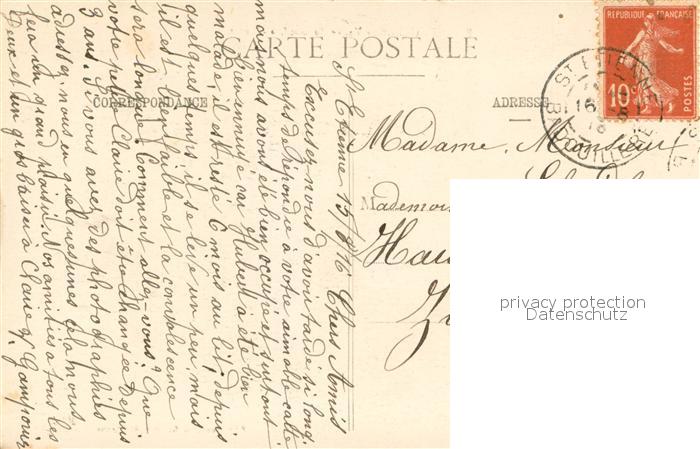 CARTE POSTALE
CORRESPONDANCE
ADRESSE
REPUBLIQUE FRANÇAISE
10c
POSTES
ST ETIENNE
Madame, Monsieur
Mademoi
Hau
privacy protection
Datenschutz
St Etienne 15/8/16 Chers Amis
Excusez nous d'avoir tardé si long
temps de répondre à votre aimable carte
mais nous avons été bien occupés et surtout
bien ennuyés car Hubert a été bien
malade, il est resté 6 mois au lit, depuis
quelques temps il se lève un peu, mais
il est bien faible et la convalescence
sera longue. Comment allez-vous? Que
votre petite Claire doit être changée depuis
3 ans. Si vous avez des photographies
adressez nous en quelques unes cela nous
fera un grand plaisir. Nos amitiés à tous les
deux et un gros baiser à Claire